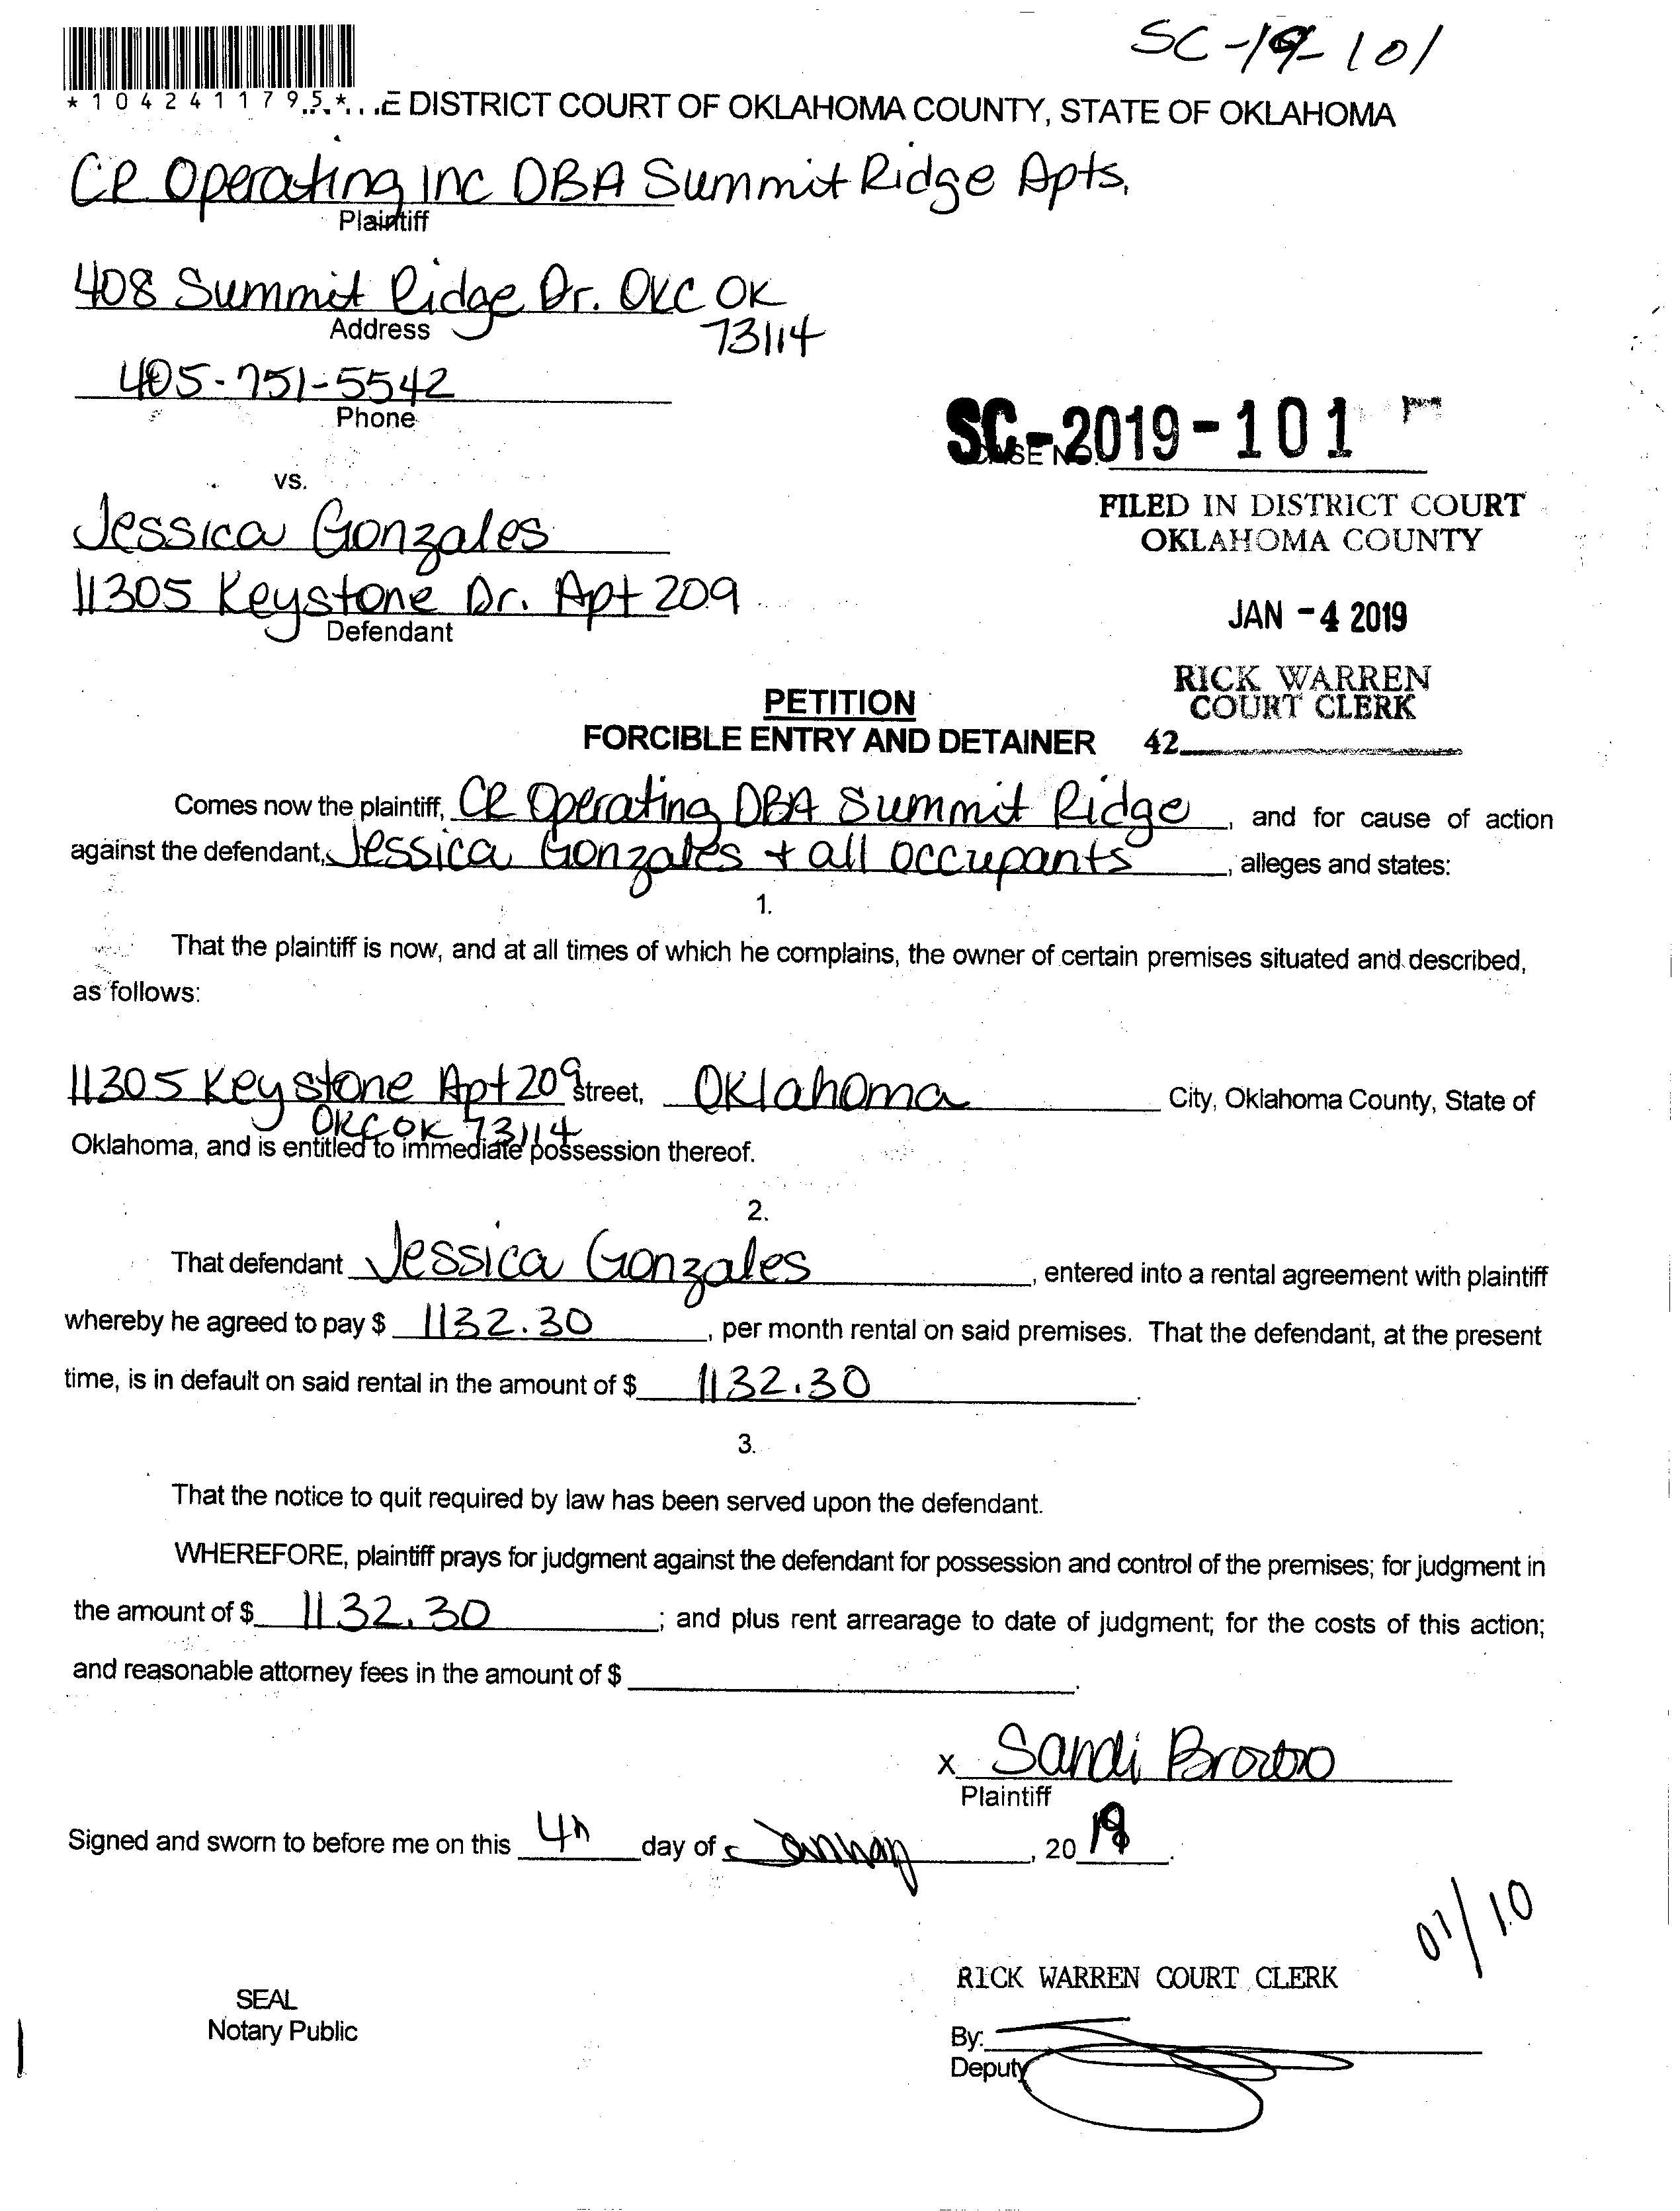 SC-19-101
*1042411795*...E DISTRICT COURT OF OKLAHOMA COUNTY, STATE OF OKLAHOMA
CR Operating Inc DBA Summit Ridge Apts.
Plaintiff
408 Summit Ridge Dr. OKC OK
73114
Address
405-751-5542
Phone
SC-2019-101
CASE NO.
vs.
FILED IN DISTRICT COURT
OKLAHOMA COUNTY
Jessica Gonzales
11305 Keystone Dr. Apt 209
Defendant
JAN -4 2019
RICK WARREN
COURT CLERK
42
PETITION
FORCIBLE ENTRY AND DETAINER
Comes now the plaintiff, CR Operating DBA Summit Ridge, and for cause of action
against the defendant, Jessica Gonzales + all occupants, alleges and states:
1.
That the plaintiff is now, and at all times of which he complains, the owner of certain premises situated and described,
as follows:
11305 Keystone Apt 209 street, Oklahoma City, Oklahoma County, State of
OKC OK 73114
Oklahoma, and is entitled to immediate possession thereof.
2.
That defendant Jessica Gonzales, entered into a rental agreement with plaintiff
whereby he agreed to pay $ 1132.30, per month rental on said premises. That the defendant, at the present
time, is in default on said rental in the amount of $ 1132.30.
3.
That the notice to quit required by law has been served upon the defendant.
WHEREFORE, plaintiff prays for judgment against the defendant for possession and control of the premises; for judgment in
the amount of $ 1132.30; and plus rent arrearage to date of judgment; for the costs of this action;
and reasonable attorney fees in the amount of $ .
x Sandi Brown
Plaintiff
Signed and sworn to before me on this 4th day of January, 2019.
01/10
RICK WARREN COURT CLERK
SEAL
Notary Public
By:
Deputy